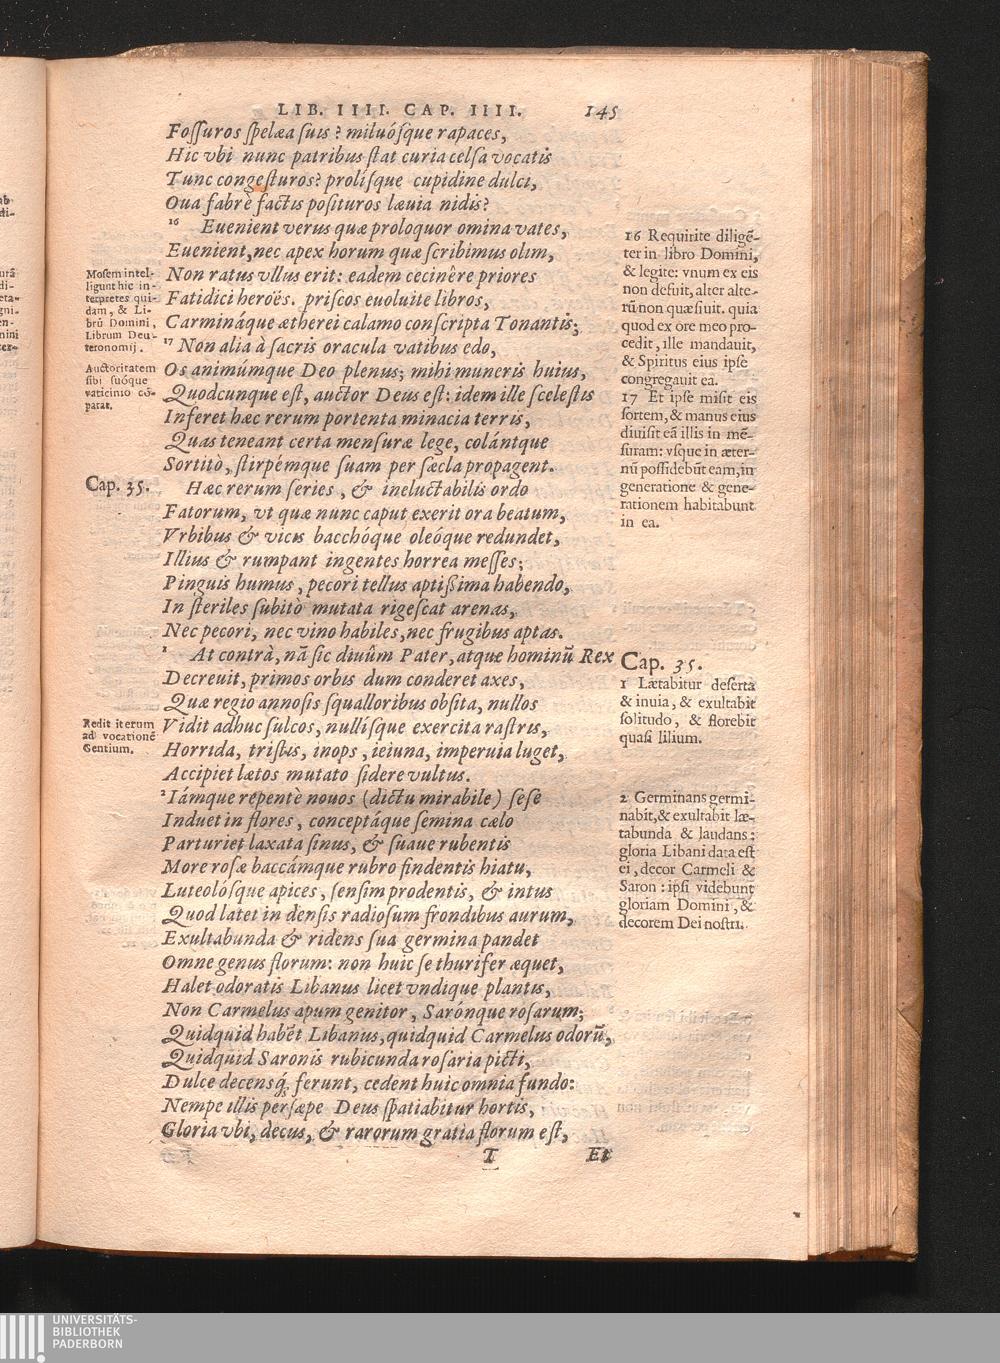 LIB. IIII. CAP. IIII. 145
Fossuros spelæa suis? miluósque rapaces,
Hic vbi nunc patribus stat curia celsa vocatis
Tunc congesturos? prolísque cupidine dulci,
Oua fabrè factis posituros læuia nidis?
16 Euenient verus quæ proloquor omina vates,
Euenient, nec apex horum quæ scribimus olim,
Non ratus vllus erit: eadem cecinêre priores
Fatidici heroës. priscos euoluite libros,
Carmináque ætherei calamo conscripta Tonantis;
17 Non alia à sacris oracula vatibus edo,
Os animúmque Deo plenus; mihi muneris huius,
Quodcunque est, auctor Deus est: idem ille scelestis
Inferet hæc rerum portenta minacia terris,
Quas teneant certa mensuræ lege, colántque
Sortitò, stirpémque suam per sæcla propagent.
Hæc rerum series, & ineluctabilis ordo
Fatorum, vt quæ nunc caput exerit ora beatum,
Vrbibus & vicis bacchóque oleóque redundet,
Illius & rumpant ingentes horrea messes;
Pinguis humus, pecori tellus aptißima habendo,
In steriles subitò mutata rigescat arenas,
Nec pecori, nec vino habiles, nec frugibus aptas.
1 At contrà, nã sic diuûm Pater, atque hominũ Rex
Decreuit, primos orbis dum conderet axes,
Quæ regio annosis squalloribus obsita, nullos
Vidit adhuc sulcos, nullísque exercita rastris,
Horrida, tristis, inops, ieiuna, imperuia luget,
Accipiet lætos mutato sidere vultus.
2 Iámque repentè nouos (dictu mirabile) sese
Induet in flores, conceptáque semina cælo
Parturiet laxata sinus, & suaue rubentis
More rosæ baccámque rubro findentis hiatu,
Luteolósque apices, sensim prodentis, & intus
Quod latet in densis radiosum frondibus aurum,
Exultabunda & ridens sua germina pandet
Omne genus florum: non huic se thurifer æquet,
Halet odoratis Libanus licet vndique plantis,
Non Carmelus apum genitor, Sarónque rosarum;
Quidquid habẽt Libanus, quidquid Carmelus odorũ,
Quidquid Saronis rubicunda rosaria picti,
Dulce decensq́; ferunt, cedent huic omnia fundo:
Nempe illis persæpe Deus spatiabitur hortis,
Gloria vbi, decus, & rarorum gratia florum est,
T Et
Mosem intel-
ligunt hic in-
terpretes qui-
dam, & Li-
brũ Domini,
Librum Deu-
teronomij.
Auctoritatem
sibi suóque
vaticinio cõ-
parat.
Cap. 35.
Redit iterum
ad vocationẽ
Gentium.
16 Requirite diligẽ-
ter in libro Domini,
& legite: vnum ex eis
non defuit, alter alte-
rũ non quæsiuit. quia
quod ex ore meo pro-
cedit, ille mandauit,
& Spiritus eius ipse
congregauit ea.
17 Et ipse misit eis
sortem, & manus eius
diuisit eã illis in mẽ-
suram: vsque in æter-
nũ possidebũt eam, in
generatione & gene-
rationem habitabunt
in ea.
Cap. 35.
1 Lætabitur deserta
& inuia, & exultabit
solitudo, & florebit
quasi lilium.
2 Germinans germi-
nabit, & exultabit læ-
tabunda & laudans:
gloria Libani data est
ei, decor Carmeli &
Saron: ipsi videbunt
gloriam Domini, &
decorem Dei nostri.
UNIVERSITÄTS-
BIBLIOTHEK
PADERBORN